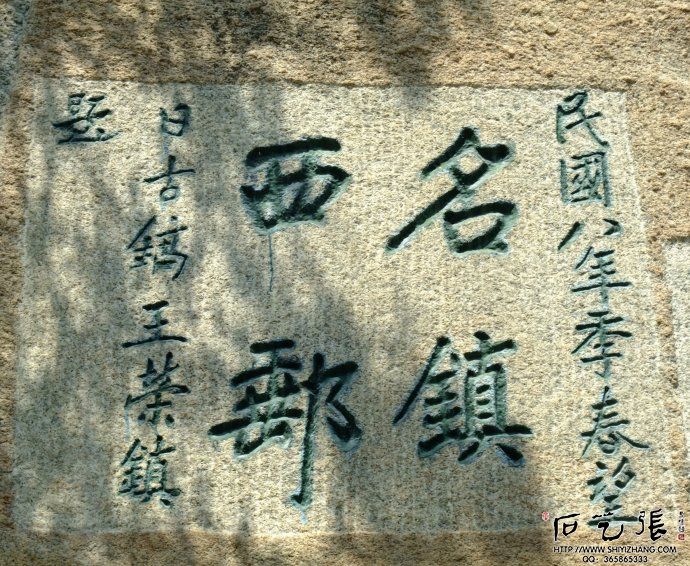 民國八年季春望
名鎮
西郵
日古鎬王榮鎮
題
石艺張
HTTP://WWW.SHIYIZHANG.COM
QQ: 365865333